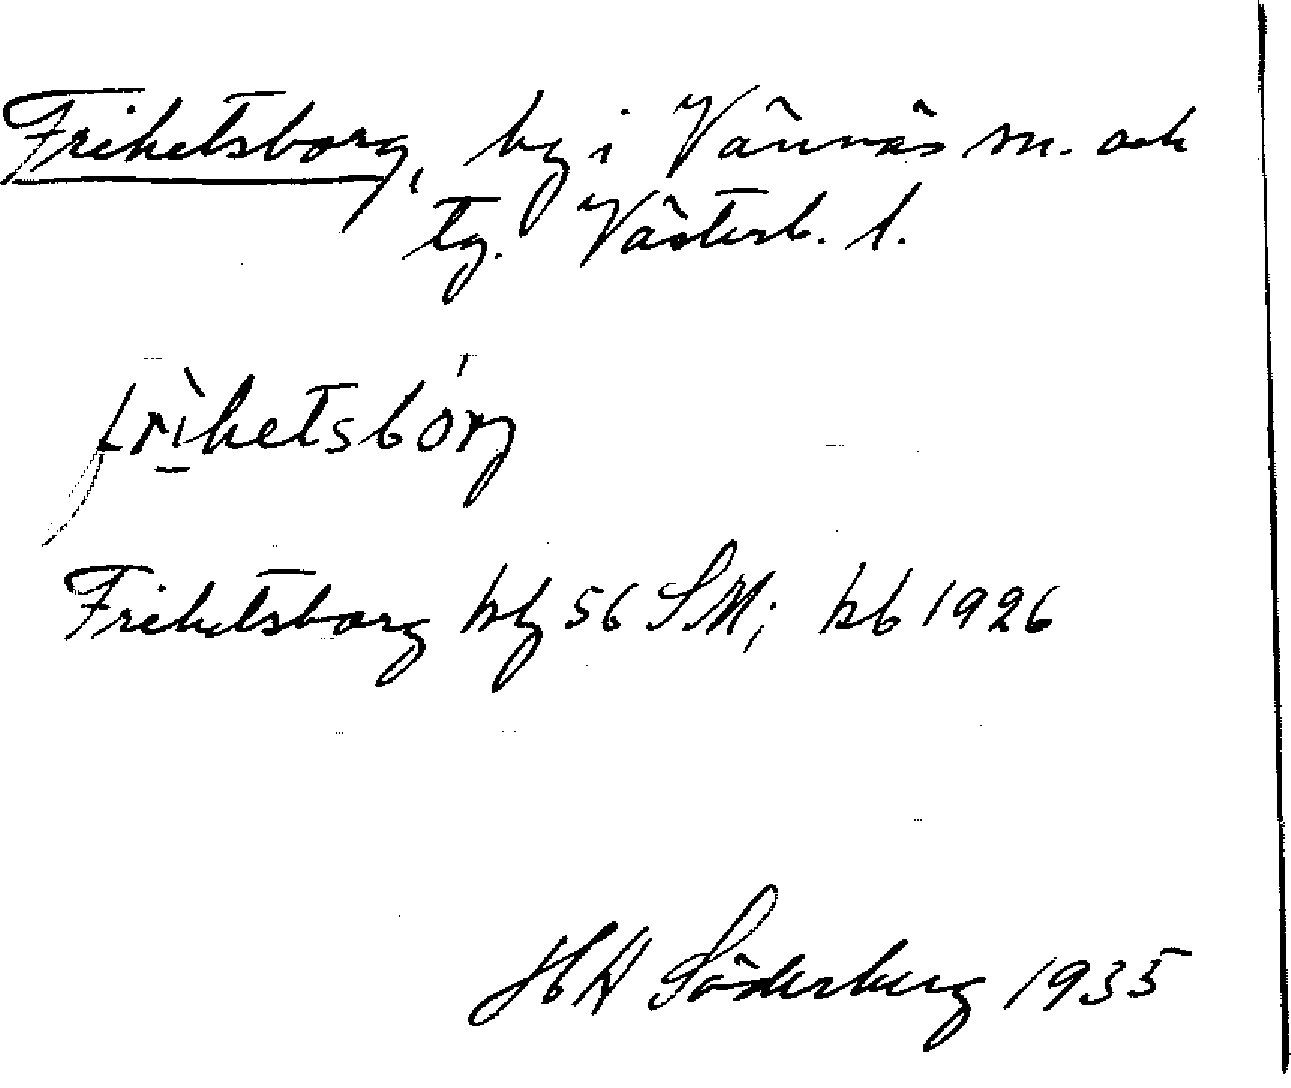 Frihetsborg, by i Vännäs sn. och
tg. Västerb. l.
frìhetsbórj
Frihetsborg by 56 SM; kb 1926
HH Söderberg 1935